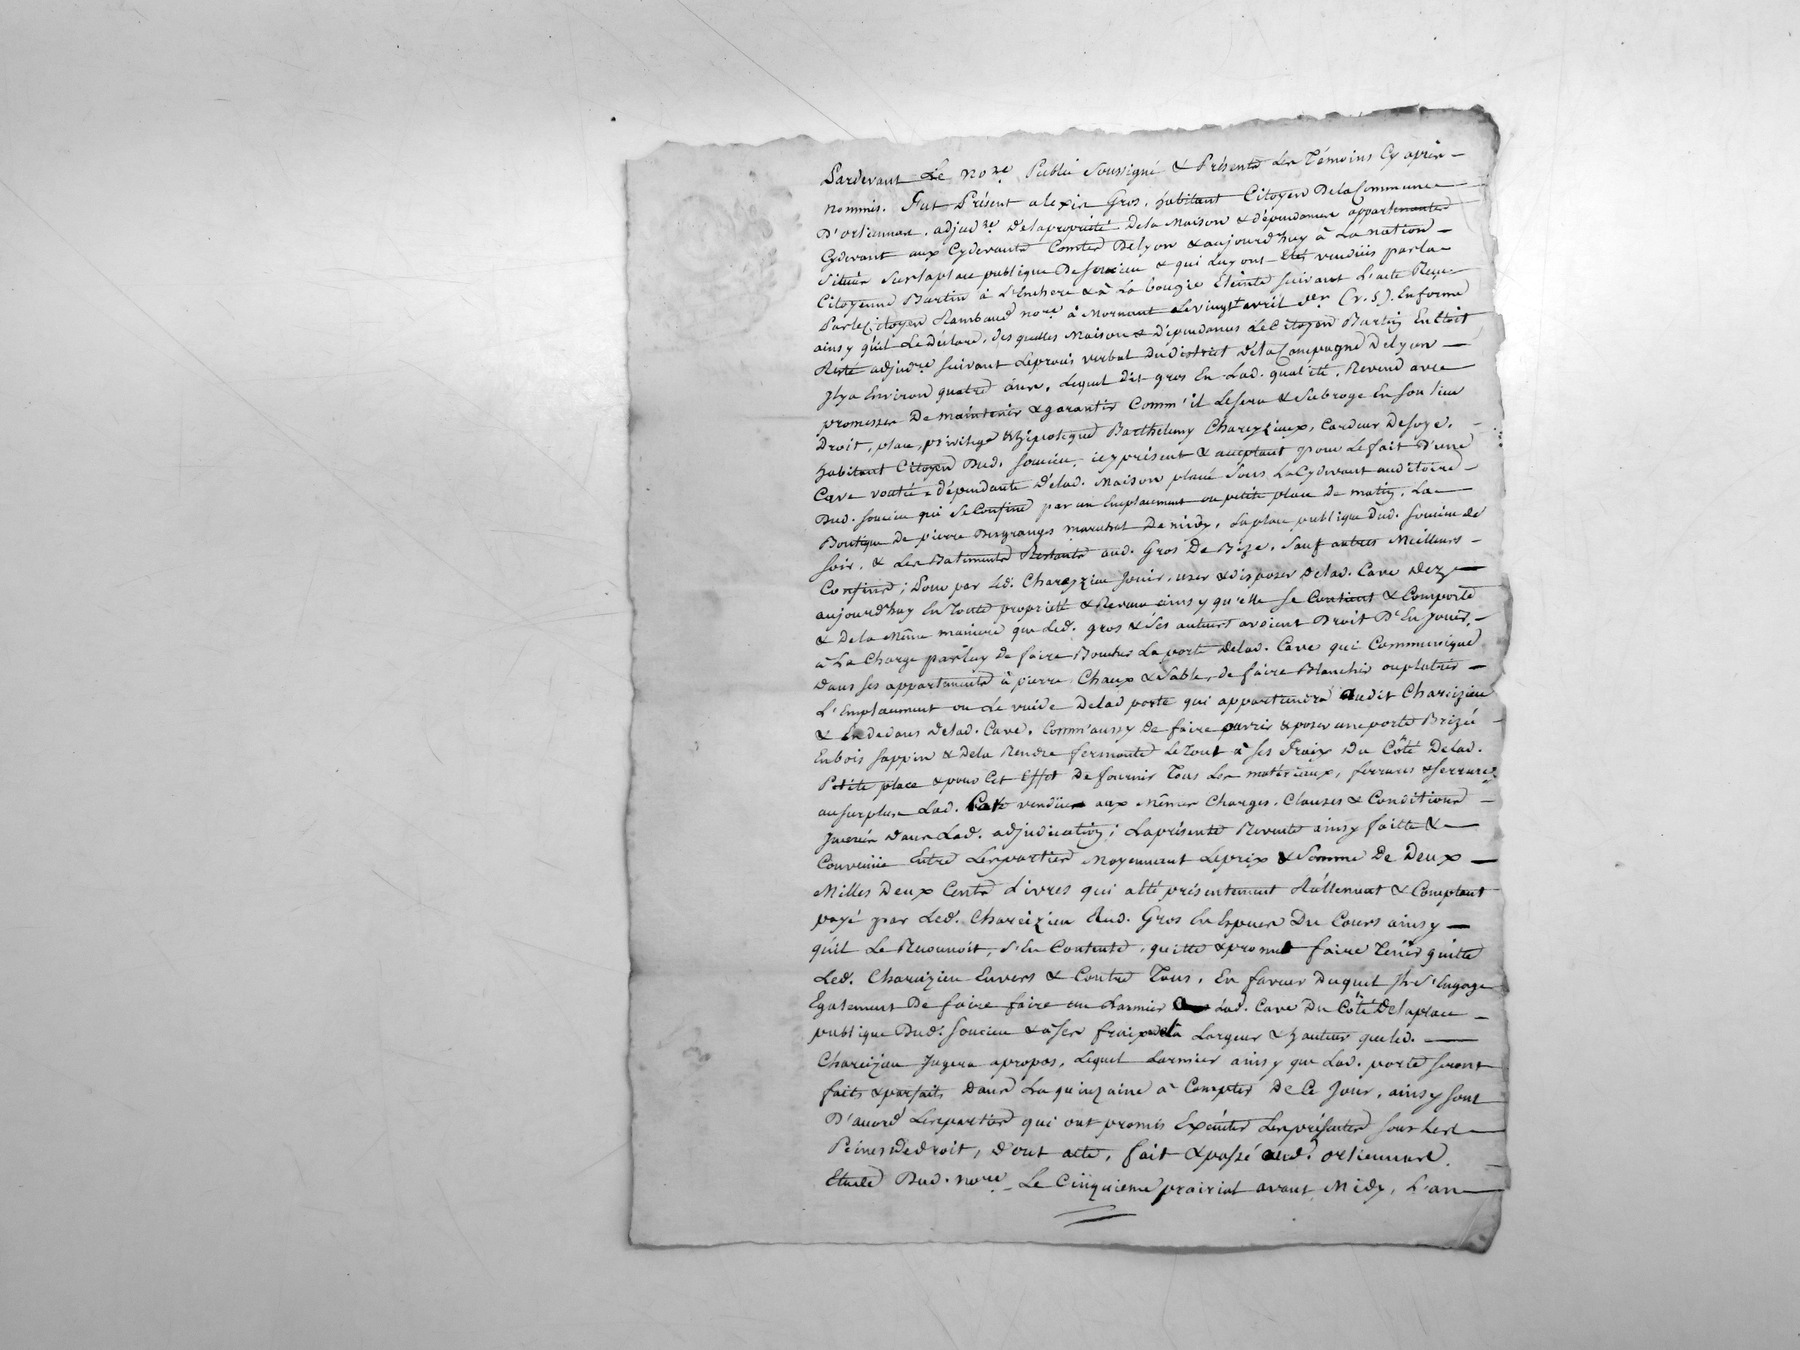 Pardevant Le no.re Public Soussigné & Présents Les Témoins Cy après
nommés. Fut Présent alexis Gros, habitant Citoyen De la Commune
D'orliennas, adjud.re De la propriété De la Maison & dépendances appartenantes
Cydevant aux Cydevants Comtes De lyon & aujourd'huy à La nation
Située Sur la place publique De soucieu & qui luy ont étés vendües par la
Citoyenne Martin à L'Enchere & à La bougie Eteinte suivant L'acte Reçu
Par le Citoyen Rambaud no.re à Mornant Le vingt avril d.er (v. s.). En forme
ainsy qu'il Le Déclare, des quelles Maison & Dépendances Le Citoyen Martin En étoit
Resté adjud.re suivant Le procès verbal du District De la Campagne De lyon
Il y a Environ quatre ans, Lequel dit gros En Lad. qualité, Revend avec
promesse De maintenir & garantir Comm'il Le sera & Subroge En son lieu
Droit, place, privilege & hipoteque Barthelemy Chareyzieux, Cardeur De soye,
habitant Citoyen Dud. soucieu, icy présent & acceptant pour Le fait D'une
Cave voutée dépendante De lad. Maison placé Sous La Cydevant auditoire
Dud. soucieu qui Se Confine par un Emplacement ou petite place de matin, La
Boutique De pierre Desgranges marechal De midy, La place publique Dud. soucieu de
soir, & Les Batiments Restants aud. Gros De Bize, Sauf autres Meilleurs
Confins; Pour par Led. Chareyzieu Jouir, user & disposer De lad. Cave Dez
aujourd'huy En Toute propriété & Revenu ainsy qu'elle se Contient & Comporte
& De la Même maniere que Led. gros & Ses auteurs avoient Droit D'En Jouir,
à La Charge par luy de faire Boucher La porte De lad. Cave qui Communique
Dans ses appartements à pierre, Chaux & Sable, de faire Blanchir ou platrir
L'Emplacement ou Le vuide De lad porte qui appartiendra audit Chareizieu
& En dedans De lad. Cave, Comm'aussy De faire ouvrir & poser une porte Brizée
En bois sappin & De la Rendre fermante Le tout à ses Fraix Du Côté De lad.
Petite place & pour Cet Effet De fournir Tous Les matériaux, ferrures & serrures
au surplus Lad. Cave vendüe aux Mêmes Charges, Clauses & Conditions
Jnserées Dans Lad. adjudication; La présente Revente ainsy faitte &
Convenüe Entre Les parties Moyennant Le prix & Somme De Deux
Milles Deux Cents Livres qui a été présentement Réellement & Comptant
payé par Led. Chareizieu Aud. Gros En Espèces Du Cours ainsy
qu'il Le Reconnoit, s'En Contente, quitte & promet faire Tenir quitte
Led. Chareizieu Envers & Contre Tous, En faveur Duquel Il S'Engage
Egalement De faire faire un Larmier Lad. Cave Du Côté De la place
publique Dud. Soucieu & à Ses fraix De la Largeur & hauteur que led.
Chareizieu Jugera apropos, Lequel Larmier ainsy que Lad. porte Seront
faits & parfaits Dans La quinzaine à Compter De Ce Jour, ainsy sont
D'accord Les parties qui ont promis Exécuter Les présentes sous Les
Peines De droit, D'ont acte, fait & passé aud. orliennas,
Etude Dud. no.re Le Cinquieme prairial avant Midy, L'an